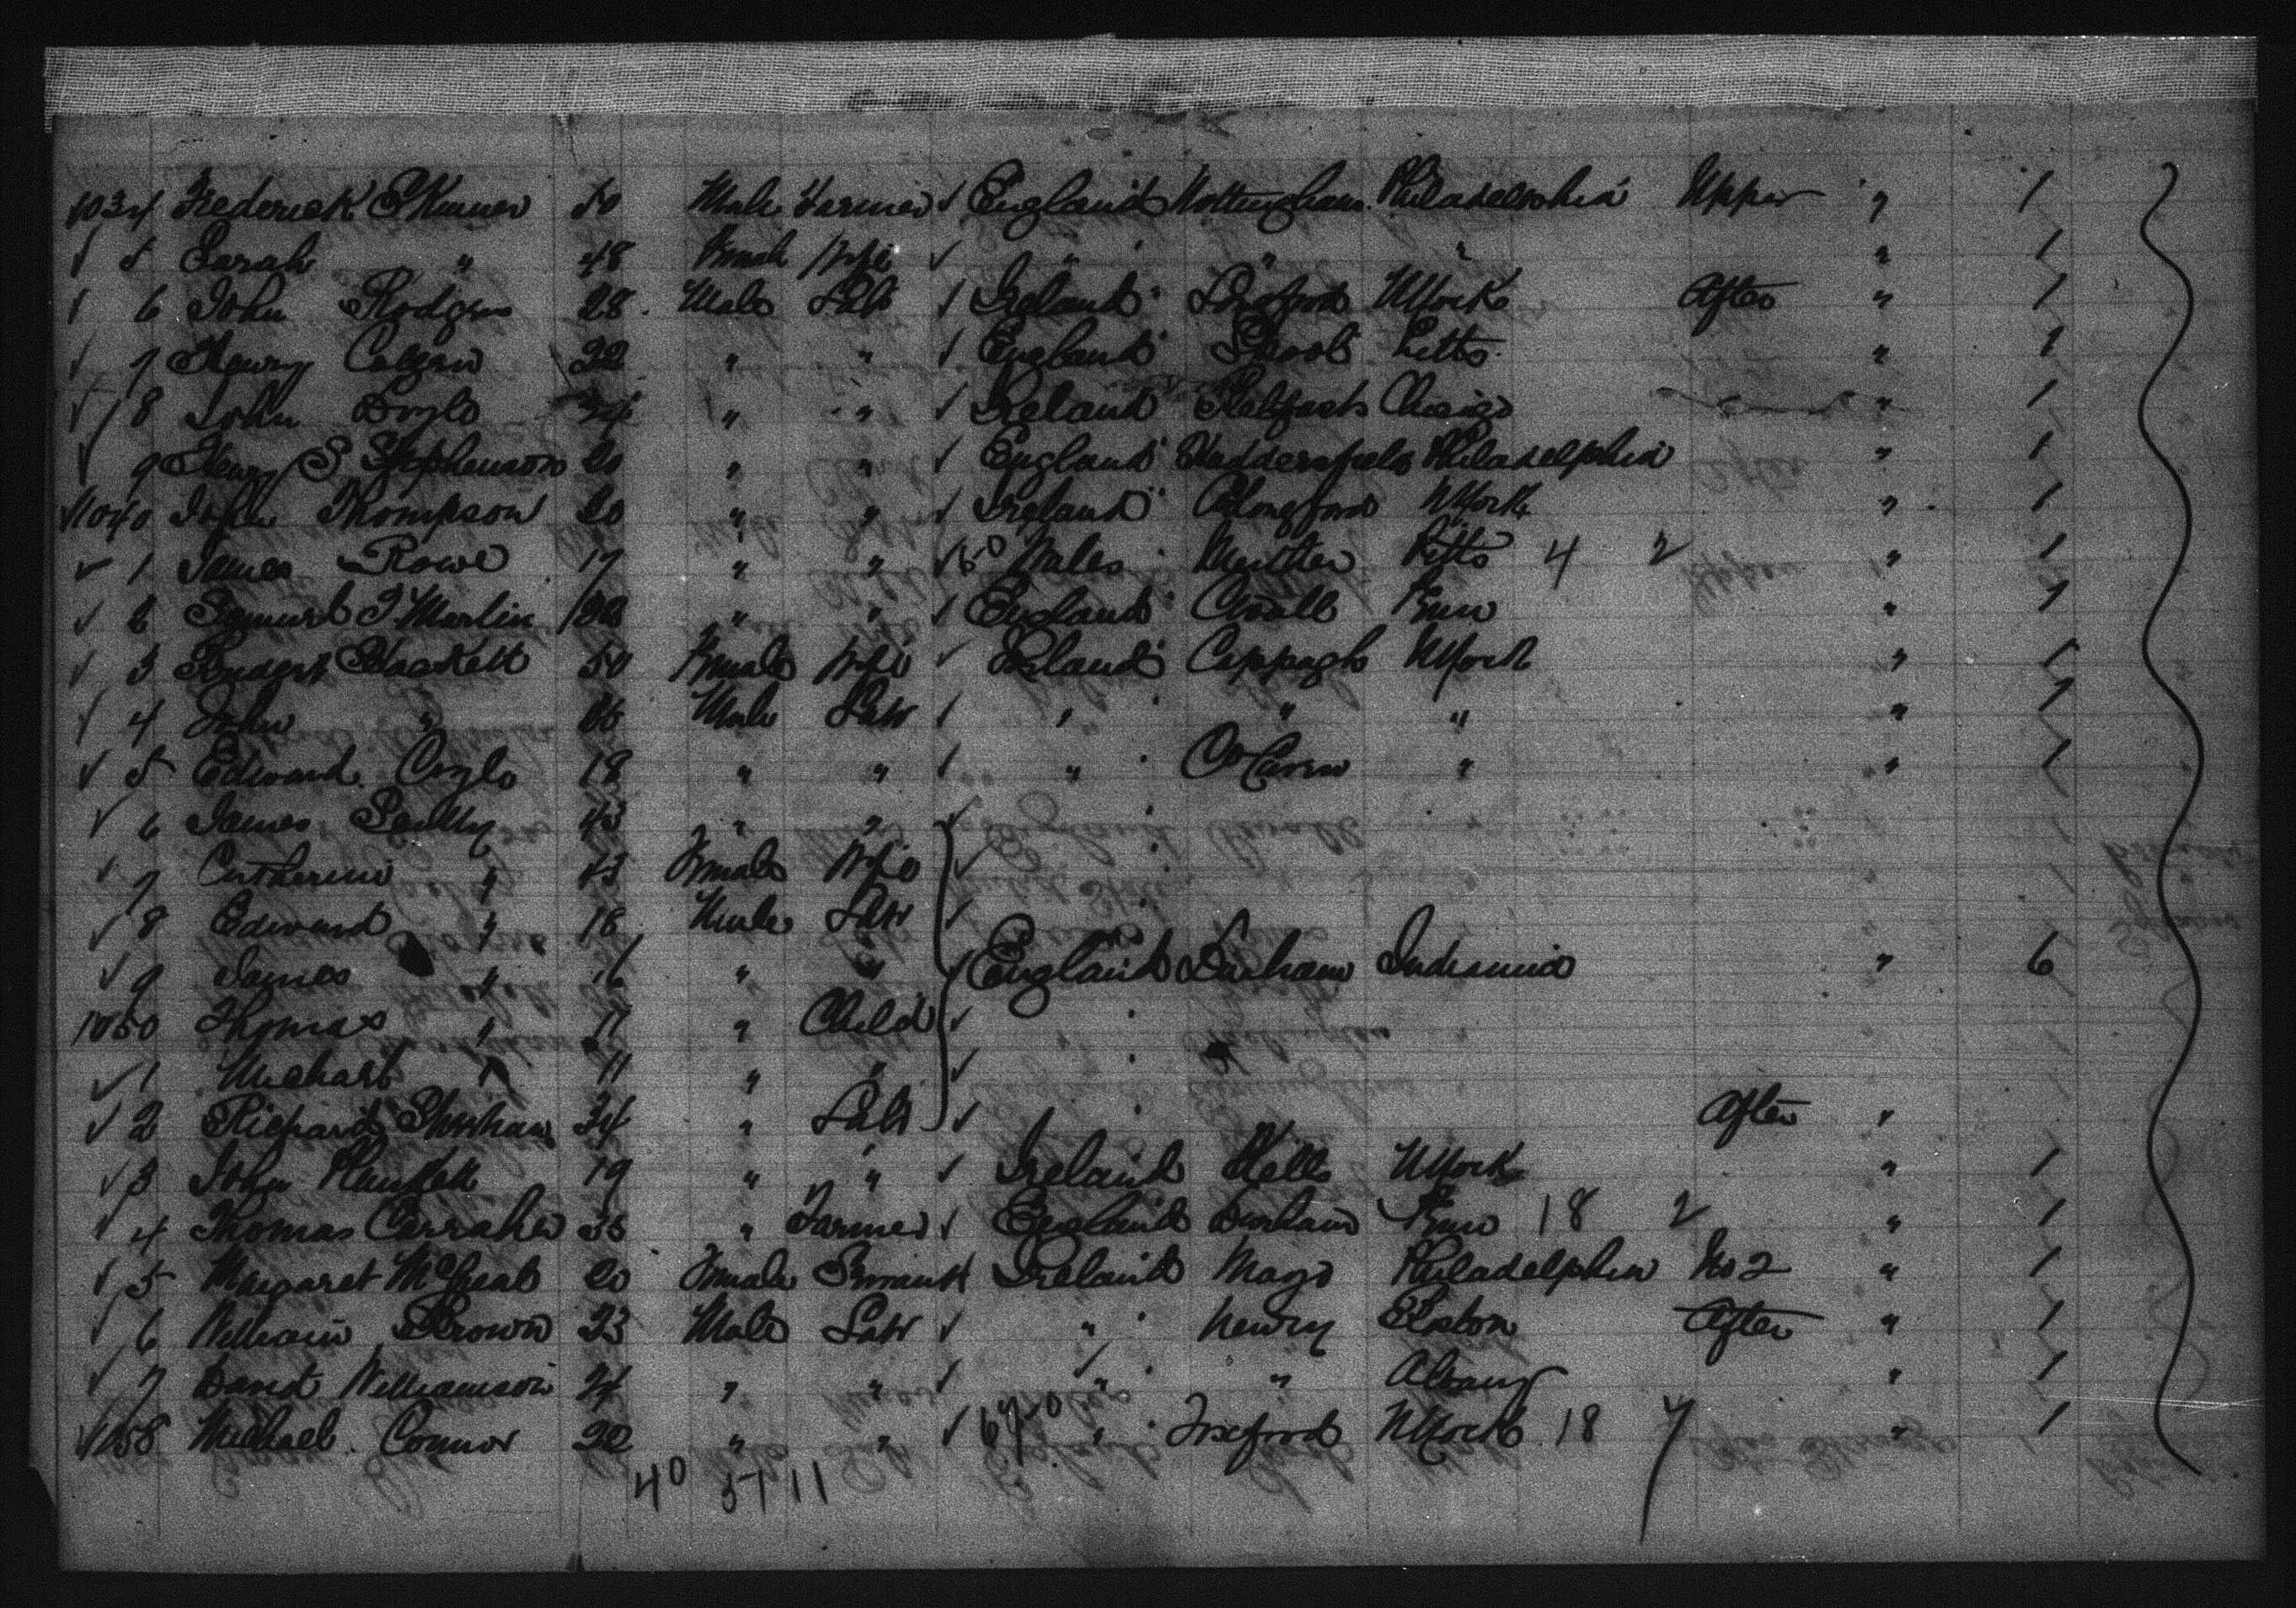 1034 Frederick Skinner 50 Male Farmer England Nottingham Philadelphia Upper " 1
5 Sarah " 48 Female Wife " " " " 1
6 John Rodgers 28 Male Labr Ireland Longford N York After " 1
7 Henry 22 " " England Lpool Pitts " 1
8 John Doyle 24 " " Ireland Belfast Chicago " 1
9 Henry S Stephenson 20 " " England Huddersfield Philadelphia " 1
1040 John Thompson 20 " " Ireland Longford N York " 1
1 James Rowe 17 " " Wales Merther Pitts 4 2 " 1
2 Samuel J Martin 22 " " England Penn " 1
3 Hackett 50 Female Wife Ireland Cappagh N York " 1
4 John " Male Labr " " " " 1
5 Edward 18 " " " Co Cavan " " 1
6 James Scully 43 " "
7 Catherine " 43 Female Wife
8 Edward " 18 Male Labr
9 James " 16 " " England Durham " 6
1050 Thomas " 11 " Child
1 Michael " 11 " "
2 Richard 34 " Labr After "
3 John 19 " " Ireland Kells N York " 1
4 Thomas Carraher 35 " Farmer England Durham Penn 18 2 " 1
5 Margaret 20 Female Servant Ireland Mayo Philadelphia No 2 " 1
6 William Brown 23 Male Labr " Newry Boston After " 1
7 David Williamson 24 " " " " Albany " 1
1058 Michael Connor 22 " " 67-0 " Foxford N York 18 7 " 1
40 57 11